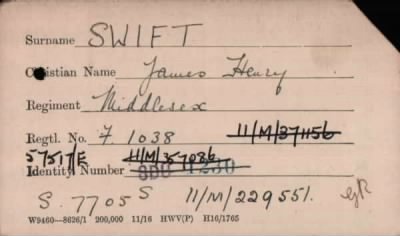 Surname SWIFT
Christian Name James Henry
Regiment Middlesex
Regtl. No. F 1038 11/M/371156
57517/E 11/M/357086
Identity Number 1230
S. 7705 S 11/M/229551.
W9460—8626/1 200,000 11/16 HWV(P) H16/1765